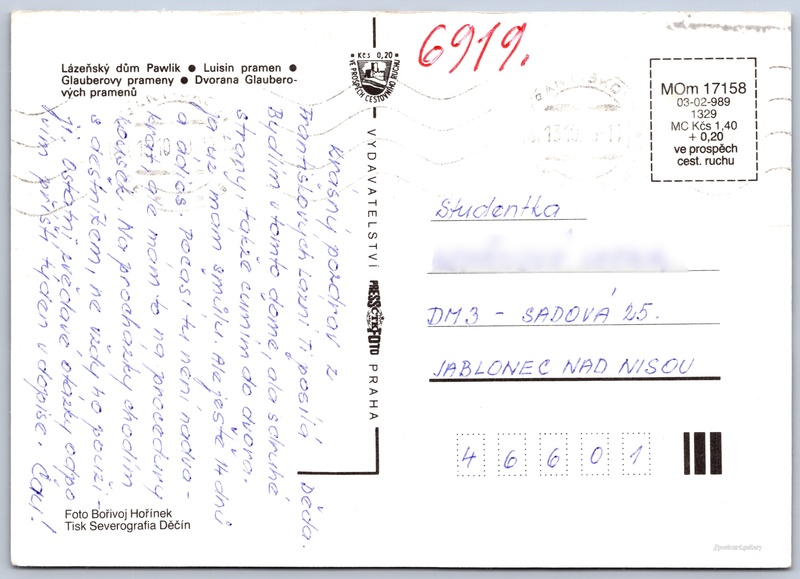 Lázeňský dům Pawlik ● Luisin pramen ●
Glauberovy prameny ● Dvorana Glaubero-
vých pramenů
Krásný pozdrav z
Františkových Lázní Ti posílá děda.
Bydlím v tomto domě, ale s druhé
strany, takže čumím do dvora.
já už mám smůlu. Ale ještě 14 dnů
a adios. Počasí tu není nadvo-
krát, ale mám to na procedury
kousek. Na procházky chodím
s deštníkem, ne vždy ho použi-
ji. Ostatní zvědavé otázky odpo
vím příští týden v dopise. Čau!
Foto Bořivoj Hořínek
Tisk Severografia Děčín
Kčs 0,20
VE PROSPĚCH CESTOVNÍHO RUCHU
VYDAVATELSTVÍ PRESSFOTO PRAHA
ČTK
6919.
MOm 17158
03-02-989
1329
MC Kčs 1,40
+ 0,20
ve prospěch
cest. ruchu
Studentka
DM3 - SADOVÁ 25.
JABLONEC NAD NISOU
46601